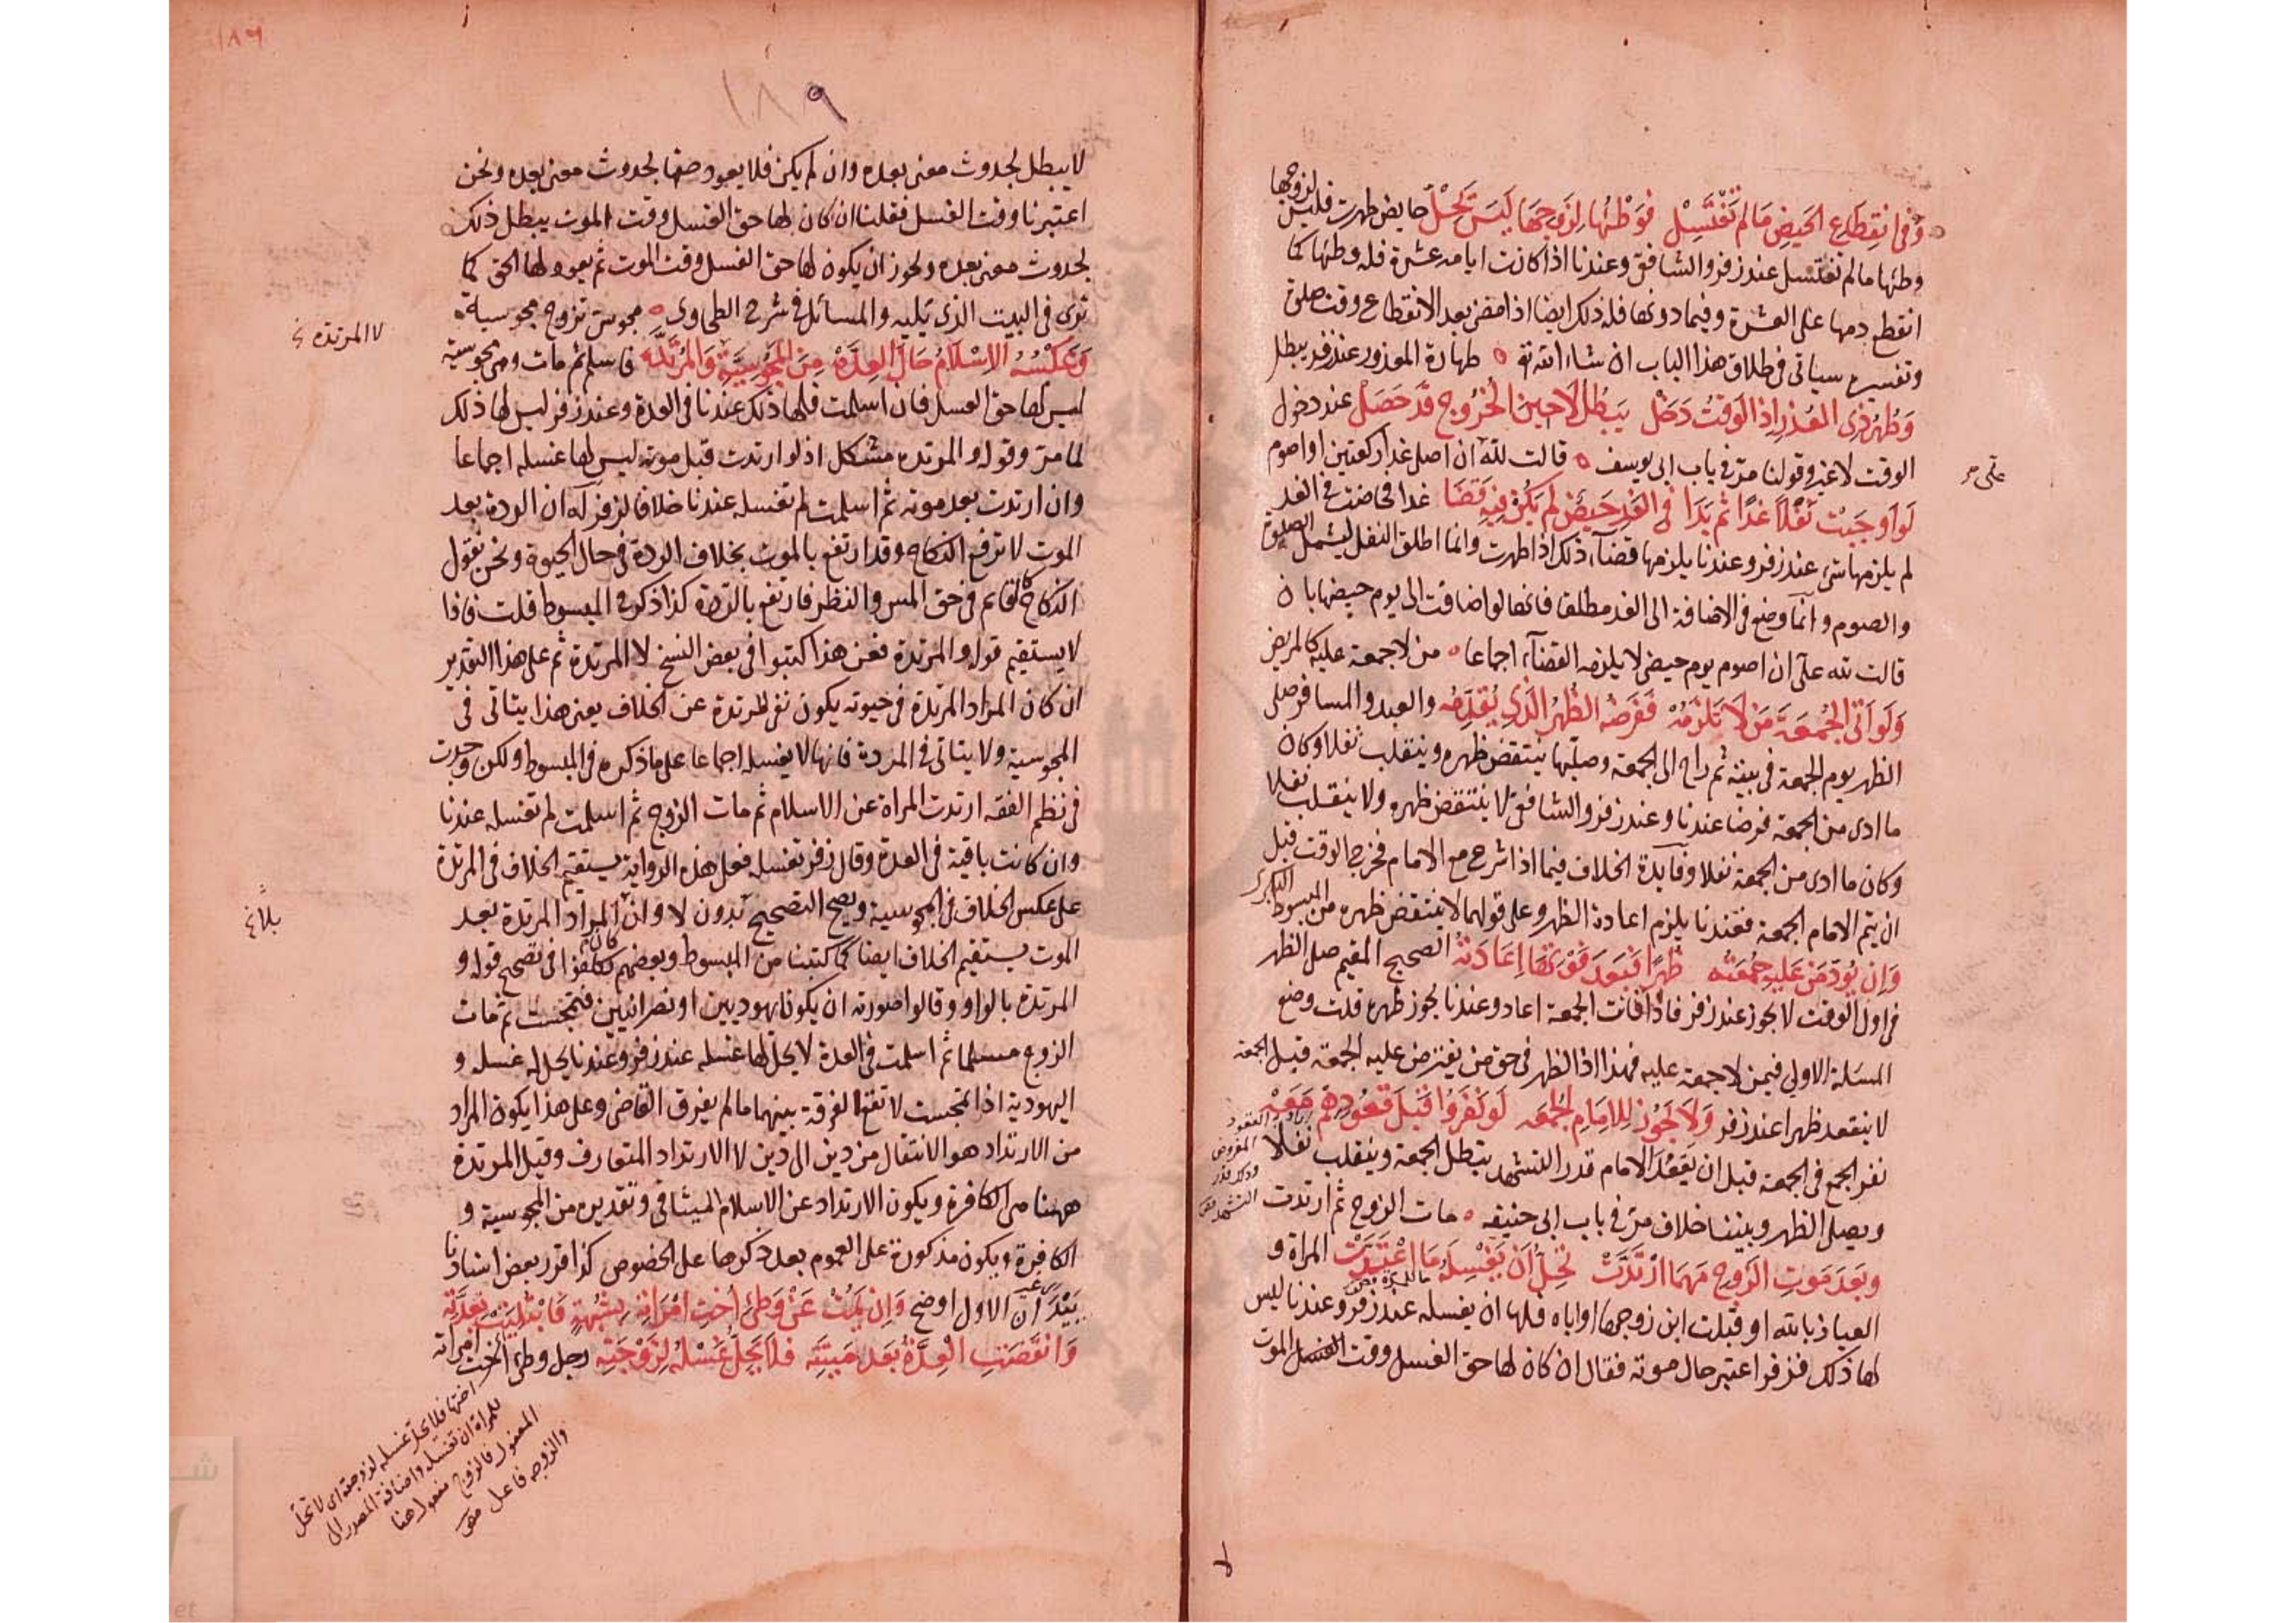 وَفي انقِطاعِ الحَيضِ مَا لم تَغْتَسِل فَوَطْئُها لِزَوجِهَا لَيسَ يَحِلّْ حايض طهرت فليس لزوجها
وطئها ما لم تغتسل عند زفر والشافعي وعندنا اذا كانت ايامه عشرة فله وطئها كما
انقطع دمها على العشرة وفيما دونها فله ذلك ايضا اذا مضى بعد الانقطاع وقت صلوة
وتفسيره سياتى فى طلاق هذا الباب ان شاء الله تع ه طهارة المعذور عند زفر يبطل
وَطُهرُ ذِى العُذرِ اِذَا الوَقتُ دَخَل يَبطُل لَا حِينَ الخُرُوجِ قَد حَصَل عند دخول
الوقت لا غير وقولنا مرّ فى باب ابى يوسف ه قالت لله ان اصلى غدا ركعتين او اصوم
على مر
لَو اَوجَبَت نَفْلًا غَدًا ثُم بَدَا فِي الغَدِ حَيضٌ لم يَكُن فِيهِ قَضَا غدا فحاضت فى الغد
لم يلزمها شىء عند زفر وعندنا يلزمها قضاء ذلك اذا طهرت وانما اطلق النفل ليشمل الصلوة
والصوم وانما وضع فى الاضافة الى الغد مطلقا فانها لو اضافت الى يوم حيضها بان
قالت لله علىّ ان اصوم يوم حيضى لا يلزمه القضاء اجماعا ه من لا جمعة عليه كالمريض
وَلَو اَتَى الجُمعَةَ مَن لَا تَلزَمُه فَفَرضُهُ الظُهرُ الَّذِي يُقَدِّمُه والعبد والمسافر صلى
الظهر يوم الجمعة فى بيته ثم راح الى الجمعة وصليها ينتقض ظهره وينقلب نفلا وكان
ما ادى من الجمعة فرضا عندنا وعند زفر والشافعى لا ينتقض ظهره ولا ينقلب نفلا
وكان ما ادى من الجمعة نفلا وفايدة الخلاف فيما اذا شرع مع الامام فخرج الوقت قبل
ان يتم الامام الجمعة فعندنا يلزم اعادة الظهر وعلى قولهما لا ينتقض ظهره من المبسوط البكرى
وَاِن يُؤَدِّ مَن عَلَيهِ جُمعَتُه ظُهرًا فَبَعدَ فَوتِهَا اِعَادَتُه الصحيح المقيم صلى الظهر
فى اول الوقت لا يجوز عند زفر فاذا فاتت الجمعة اعاد وعندنا يجوز ظهره قلت وضع
المسئلة الاولى فيمن لا جمعة عليه فهذا اذ الظهر فى حق من يفترض عليه الجمعة قبل الجمعة
لا ينعقد ظهرا عند زفر وَلَا تَجُوزُ لِلاِمَامِ الجُمعَه لَو نَفَرُوا قَبلَ قُعُودِهِم مَعَه
نفر الجمع فى الجمعة قبل ان يَقعُدَ الامام قدر التشهد يبطل الجمعة وينقلب نفلا
ويصلى الظهر وبيننا خلاف مرّ فى باب ابى حنيفه ه مات الزوج ثم ارتدت
وبَعدَ مَوتِ الزَوجِ مَهمَا ارتَدَّت تَحِلُّ اَن تَغسِلَهُ مَا اعتَدَّت المراة و
العياذ بالله او قبلت ابن زوجها او اباه فلها ان يغسله عند زفر وعندنا ليس
لها ذلك فزفر اعتبر حال موته فقال ان كان لها حق الغسل وقت الموت
لا
١٨٩
١٨٩
لا يبطل لحدوث معنى بعده وان لم يكن فلا يعود حقها لحدوث معنى بعده ونحن
اعتبرنا وقت الغسل فقلنا ان كان لها حق الغسل وقت الموت يبطل ذلك
لحدوث معنى بعده ويجوز ان يكون لها حق الغسل وقت الموت ثم يعود لها الحق كما
ترى فى البيت الذى يليه والمسائل فى شرح الطحاوى ه مجوسى تزوج مجوسية
لا المرتدة خ
وَعَكسُهُ الاِسلَامُ حَالَ العِدَّه مِنَ المَجُوسِيَّةِ وَالمُرتَدَّه فاسلم ثم مات وهى مجوسية
ليس لها حق الغسل فان اسلمت فلها ذلك عندنا فى العدة وعند زفر ليس لها ذلك
لما مرّ وقوله والمرتده مشكل اذ لو ارتدت قبل موته ليس لها غسله اجماعا
وان ارتدت بعد موته ثم اسلمت لم تغسله عندنا خلافا لزفر له ان الردة بعد
الموت لا ترفع النكاح وقد ارتفع بالموت بخلاف الردة فى حال الحيوة ونحن نقول
النكاح كالقايم فى حق المس والنظر فارتفع بالردة كذا ذكر فى المبسوط قلت فاذا
لا يستقيم قوله والمرتدة فعن هذا كتبوا فى بعض النسخ لا المرتدة ثم على هذا التقدير
ان كان المراد المرتدة فى حيوته يكون نفى المرتدة عن الخلاف يعنى هذا يتاتى فى
المجوسية ولا يتاتى فى المرتدة فانها لا يغسله اجماعا على ما ذكره فى المبسوط ولكن وجدت
فى نظم الفقه ارتدت المراة عن الاسلام ثم مات الزوج ثم اسلمت لم تغسله عندنا
وان كانت باقية فى العدة وقال زفر تغسله فعلى هذه الرواية يستقيم الخلاف فى المرتدة
على عكس الخلاف فى المجوسية ويصح التصحيح بدون لا وان المراد المرتدة بعد
بلاغ
الموت يستقيم الخلاف ايضا كما كتبنا من المبسوط وبعضهم تكلفوا فى تصحيح قوله و
المرتدة بالواو وقالوا صورته ان يكونا يهوديين او نصرانيين فتمجست ثم مات
الزوج مسلما ثم اسلمت فى العدة لا يحل لها غسله عند زفر وعندنا يحل له غسله و
اليهودية اذا تمجست لا تقع الفرقة بينهما ما لم يفرق القاضى وعلى هذا يكون المراد
من الارتداد هو الانتقال من دين الى دين لا الارتداد المتعارف وقيل المرتدة
ههنا هى الكافرة ويكون الارتداد عن الاسلام الميثاقى وتقديره من المجوسية و
الكافرة ويكون مذكورة على العموم بعد ذكرها على الخصوص كذا قرر بعض استاذنا
بَيْدَ اَنّ الاول اوضح وَاِن يَمُت عَن وَطئِ اُختِ امرَاَتِه بِشُبهَةٍ فَابتُلِيَت بِعِدَّتِه
وَانقَضَتِ العِدَّةُ بَعدَ مَيتَتِه فَلَا يَحِلُّ غَسلُهُ لِزَوجَتِه رجل وطئ اخت امراته
اختها فلا يحل غسله لزوجته اى لا تحل
للمراة ان تغسله واضافة المصدر الى
المفعول فالزوج مفعول هنا
والزوجه فاعل